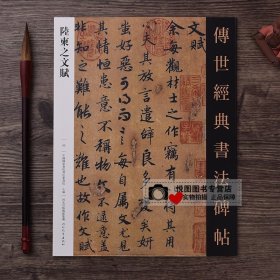 傳世經典書法碑帖
文賦
余每觀材士之作竊有以得其用
心夫其放言遣辭良多變矣妍
蚩好惡可得而言每自属文尤見
其情恒患意不稱物文不逮意盖
非知之難能之難也故作文賦
陸柬之文賦
悦图图书专营店